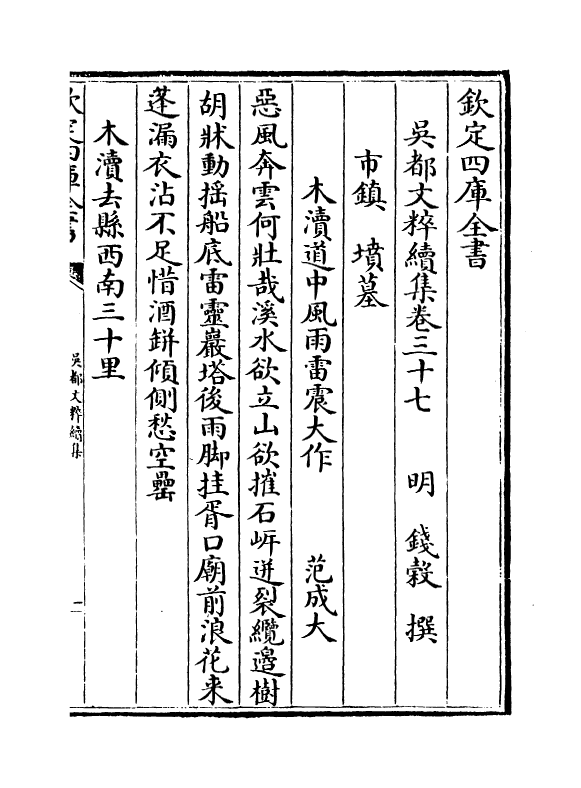 欽定四庫全書
吳都文粹續集卷三十七 明 錢榖 撰
市鎮 墳墓
木瀆道中風雨雷震大作 范成大
惡風奔雲何壯哉溪水欲立山欲摧石㟁迸裂纜邉樹
胡牀動揺船底雷靈巖塔後雨脚挂胥口廟前浪花来
蓬漏衣沾不足惜酒缾傾側愁空罍
木瀆去縣西南三十里
欽定四庫全書
吳都文粹續集
一